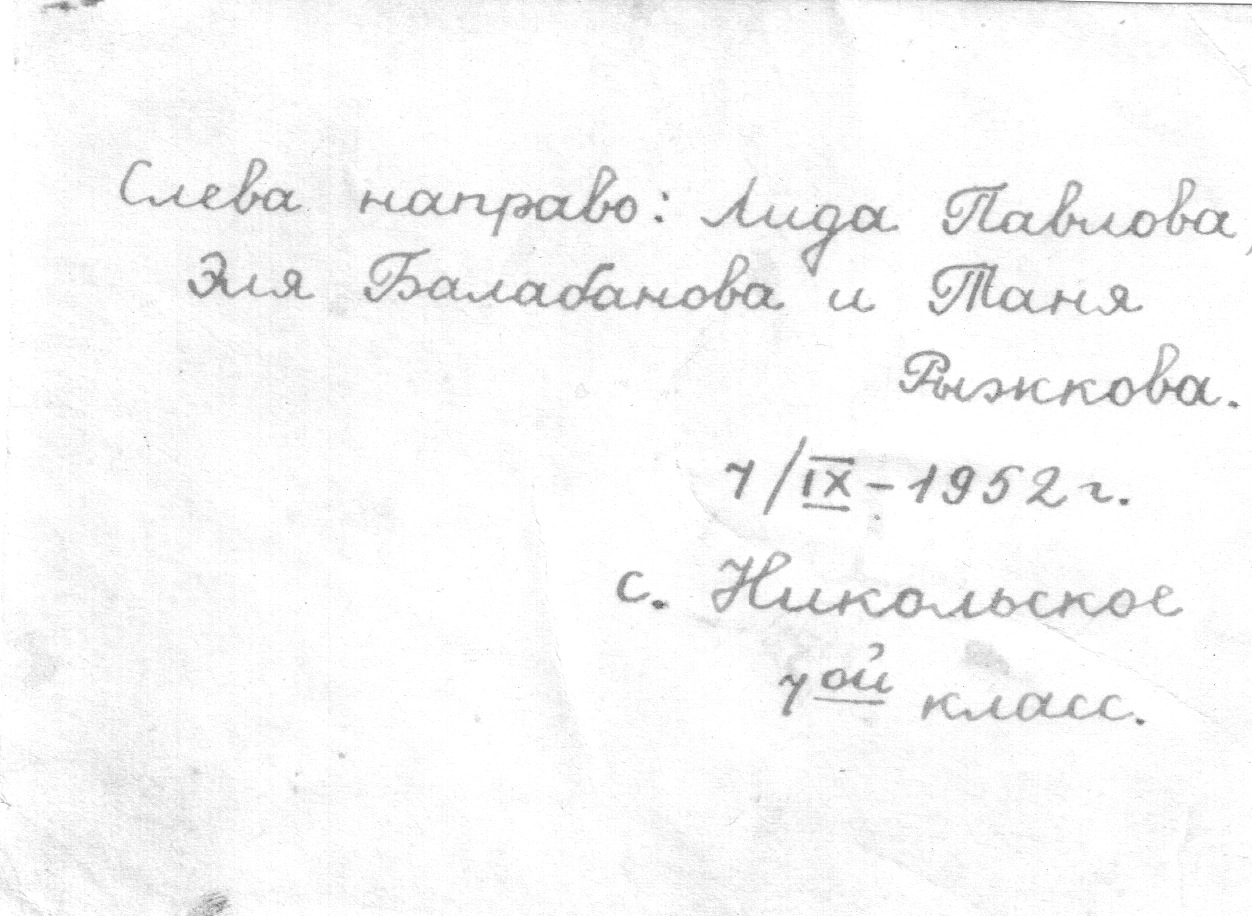 Слева направо: Лида Павлова,
Эля Балабанова и Таня
Рыжкова.
7/IX-1952 г.
с. Никольское
7ой класс.